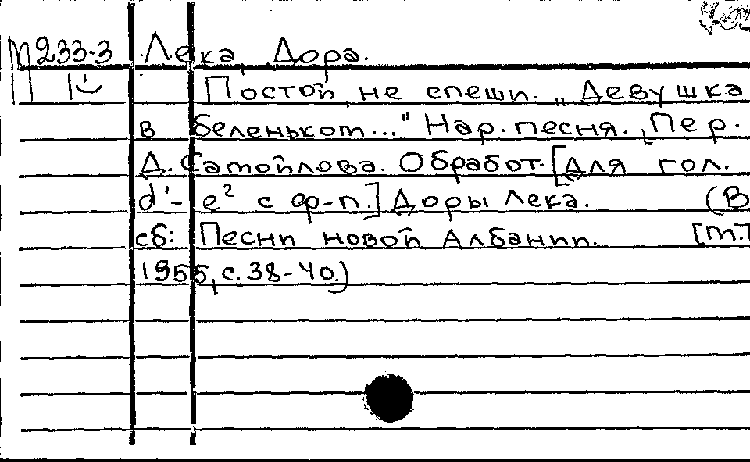 М233-3 Лека, Дора.
Постой не спеши. „Девушка
в беленьком..." Нар. песня. Пер.
Д. Самойлова. Обработ. [для гол.
d'- e² с ф-п.] Доры Лека. (В
сб: Песни новой Албании. [М.]
1955, с. 38-40.)